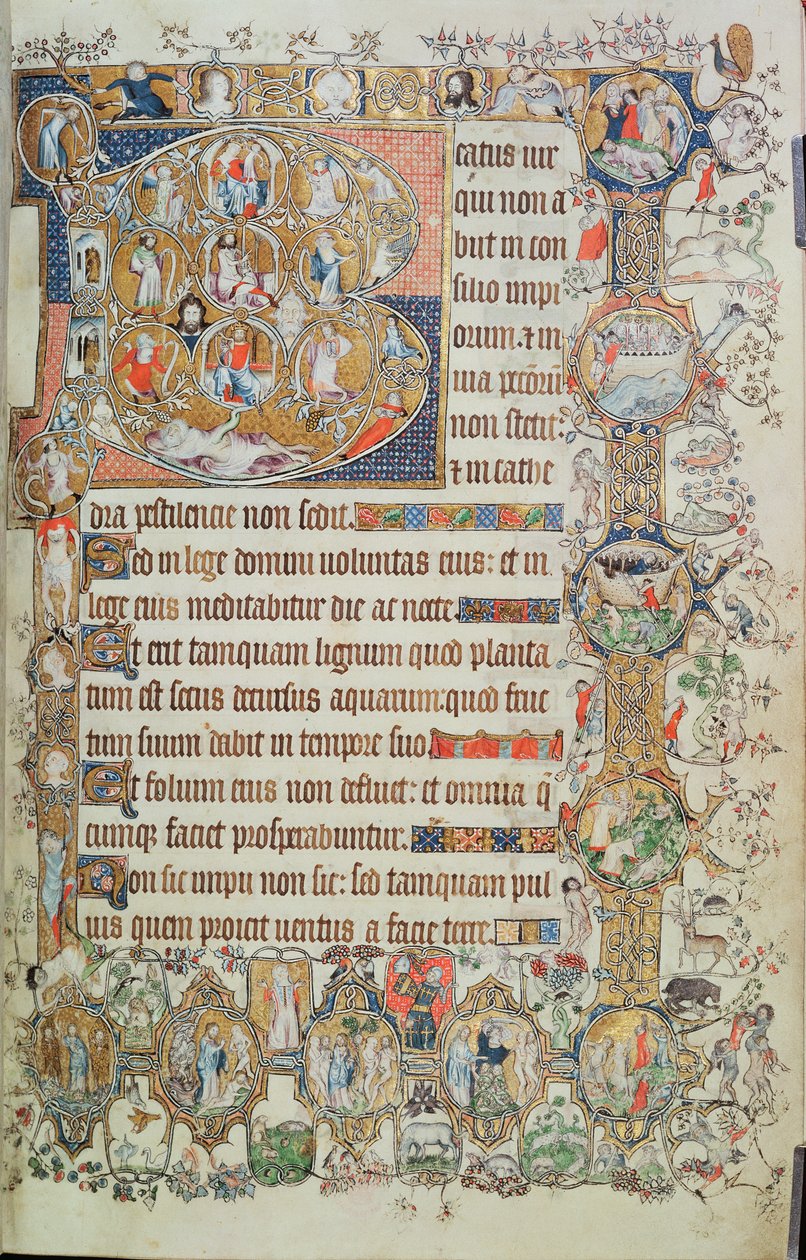 B
catus uir
qui non a
biit in con
silio impi
orum. ⁊ in
uia pcc̄oru͞
non stetit:
⁊ in cathe
dra pestilencie non sedit.
Sed in lege domini uoluntas eius: et in
lege eius meditabitur die ac nocte.
Et erit tamquam lignum quod planta
tum est secus decursus aquarum: quod fruc
tum suum dabit in tempore suo.
Et folium eius non defluet: et omnia q̄
cumq; faciet prosperabuntur.
Non sic impii non sic: sed tamquam pul
uis quem proicit uentus a facie terre.